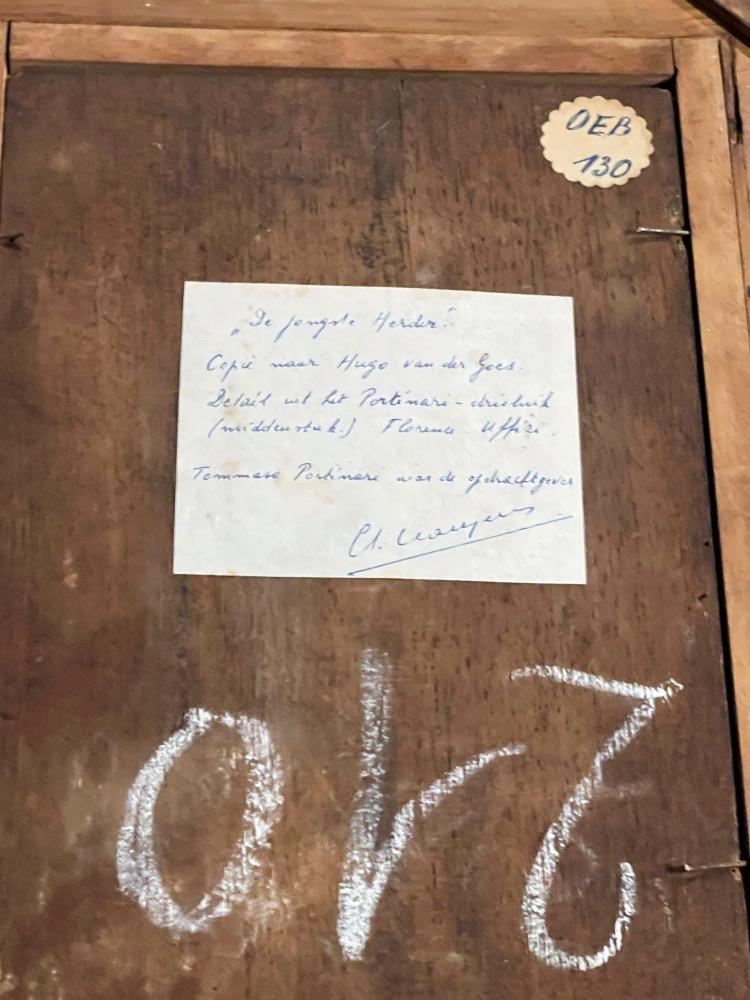 OEB
130
„De jongste Herder"
Copie naar Hugo van der Goes.
Detail uit het Portinari-drieluik
(middenstuk.) Florence Uffizi.
Tommaso Portinari was de opdrachtgever
210